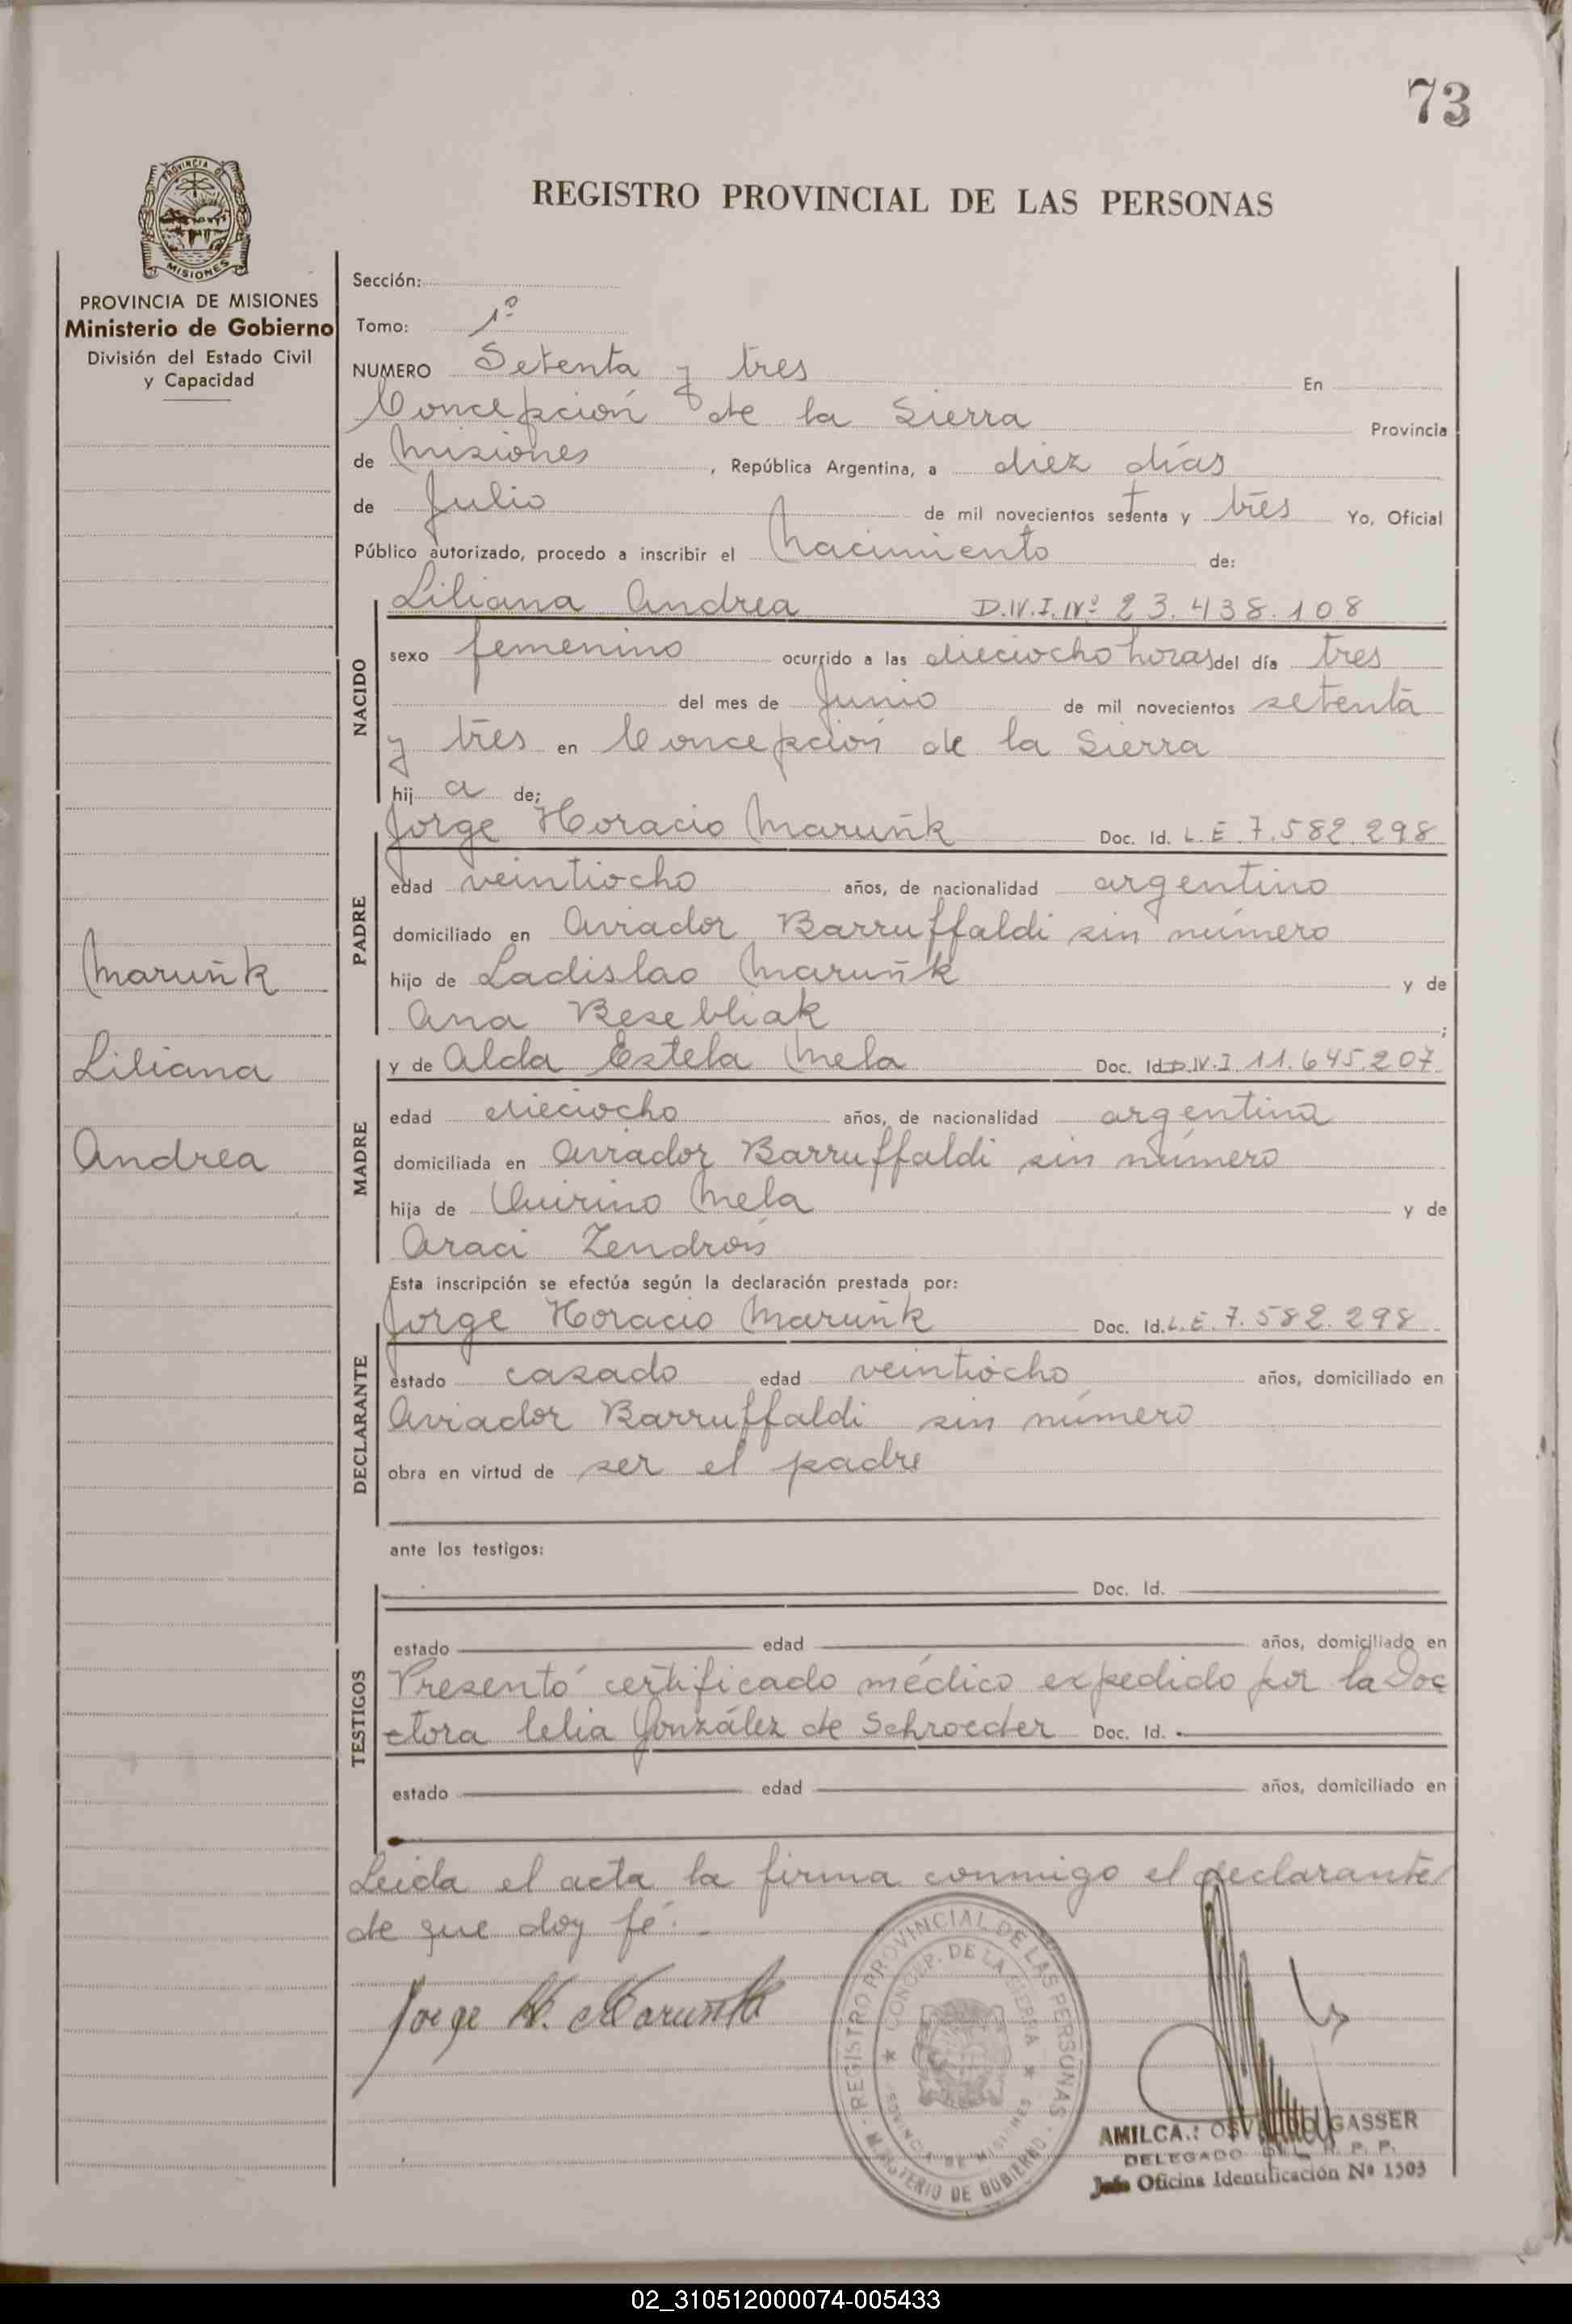 73
REGISTRO PROVINCIAL DE LAS PERSONAS
PROVINCIA DE MISIONES
PROVINCIA DE MISIONES
Ministerio de Gobierno
División del Estado Civil
y Capacidad
Sección:
Tomo: 1º
NUMERO Setenta y tres En
Concepción de la Sierra Provincia
de Misiones , República Argentina, a diez días
de Julio de mil novecientos setenta y tres Yo, Oficial
Público autorizado, procedo a inscribir el Nacimiento de:
NACIDO
Liliana Andrea D.N.I. Nº 23.438.108
sexo femenino ocurrido a las dieciocho horas del día tres
del mes de Junio de mil novecientos setenta
y tres en Concepción de la Sierra
hij a de:
PADRE
Jorge Horacio Maruñk Doc. Id. L.E 7.582.298
edad veintiocho años, de nacionalidad argentino
domiciliado en Aviador Barruffaldi sin número
hijo de Ladislao Maruñk y de
Ana Besebliak ;
MADRE
y de Alda Estela Mela Doc. Id. D.N.I. 11.645.207
edad dieciocho años, de nacionalidad argentina
domiciliada en Aviador Barruffaldi sin número
hija de Quirino Mela y de
Araci Zendrois
Maruñk
Liliana
Andrea
Esta inscripción se efectúa según la declaración prestada por:
DECLARANTE
Jorge Horacio Maruñk Doc. Id. L.E. 7.582.298
estado casado edad veintiocho años, domiciliado en
Aviador Barruffaldi sin número
obra en virtud de ser el padre
ante los testigos:
TESTIGOS
Doc. Id.
estado edad años, domiciliado en
Presentó certificado médico expedido por la Doc
tora Celia González de Schroeder Doc. Id.
estado edad años, domiciliado en
Leida el acta la firma conmigo el declarante
de que doy fé.-
Jorge H. Maruñk
REGISTRO PROVINCIAL DE LAS PERSONAS
CONCEP. DE LA SIERRA
PROVINCIA DE MISIONES
MINISTERIO DE GOBIERNO
AMILCAR OSVALDO GASSER
DELEGADO DEL R. P. P.
Jefe Oficina Identificación Nº 1503
02_310512000074-005433